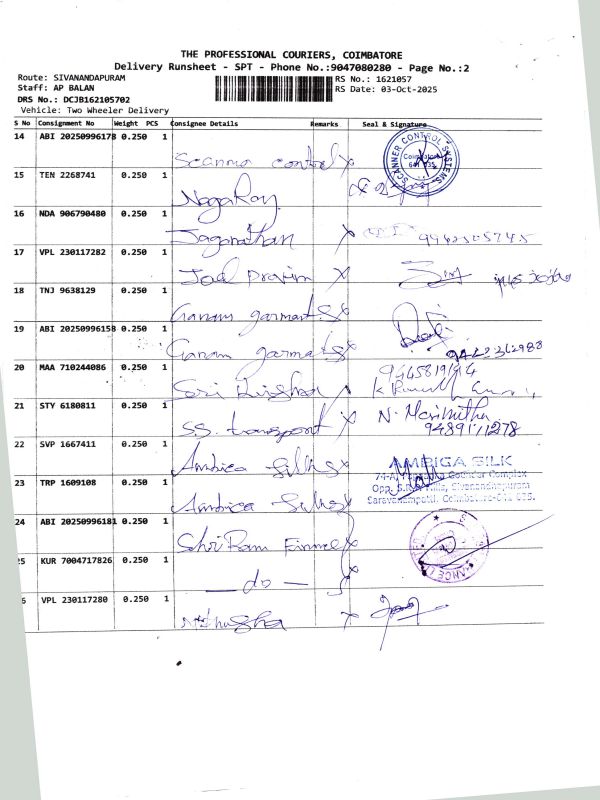 THE PROFESSIONAL COURIERS, COIMBATORE
Delivery Runsheet - SPT - Phone No.:9047080280 - Page No.:2
Route: SIVANANDAPURAM
Staff: AP BALAN
DRS No.: DCJB162105702
Vehicle: Two Wheeler Delivery
RS No.: 1621057
RS Date: 03-Oct-2025
S No Consignment No Weight PCS Consignee Details Remarks Seal & Signature
14 ABI 20250996178 0.250 1 Scanner control x
SCANNER CONTROL SYSTEMS Coimbatore 641 035
15 TEN 2268741 0.250 1 Nagaraj
16 NDA 906790480 0.250 1 Jaganathan x
17 VPL 230117282 0.250 1 x
18 TNJ 9638129 0.250 1 Ganam garments x
19 ABI 20250996158 0.250 1 Ganam garments x
20 MAA 710244086 0.250 1
21 STY 6180811 0.250 1 SS. transport x N. Marimuthu
9489171278
22 SVP 1667411 0.250 1 Ambica Silks x
AMBIGA SILK
Complex
Opp. Mills, Sivanandapuram
Saravanampatti, Coimbatore-641 035.
23 TRP 1609108 0.250 1 Ambica Silks x
24 ABI 20250996181 0.250 1 Shri Ram Finance x
KUR 7004717826 0.250 1 — do —
VPL 230117280 0.250 1 x